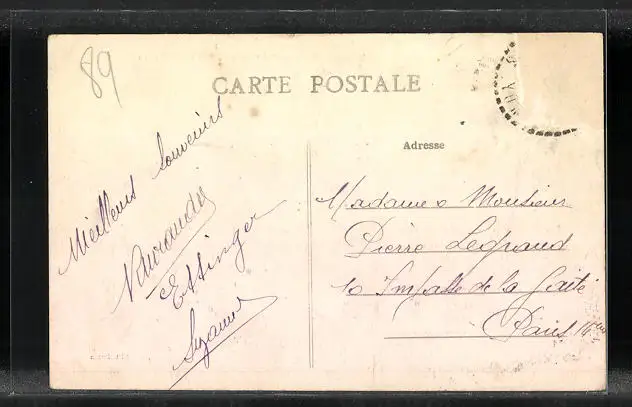 89
CARTE POSTALE
Adresse
Meilleurs Souvenirs
Ettinger
Suzanne
Madame & Monsieur
Pierre Legrand
10 Impasse de la Gaité
Paris